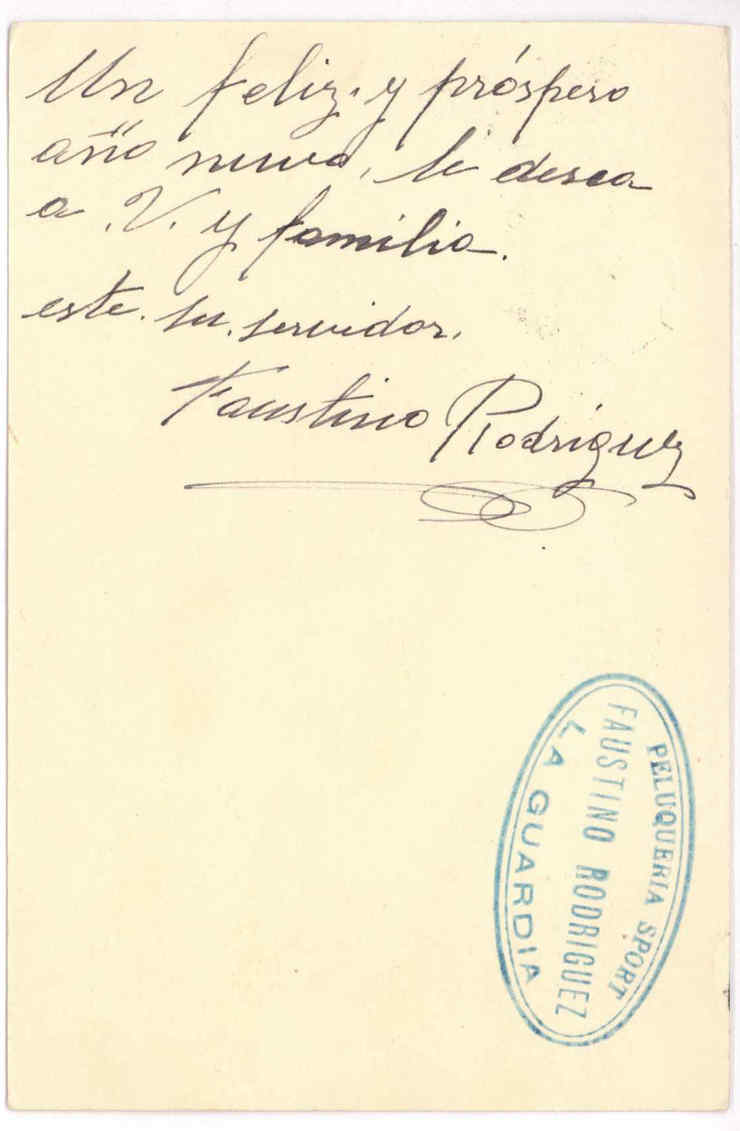 Un feliz y próspero
año nuevo, le desea
a V. y familia.
este su servidor.
Faustino Rodríguez
PELUQUERIA SPORT
FAUSTINO RODRIGUEZ
LA GUARDIA